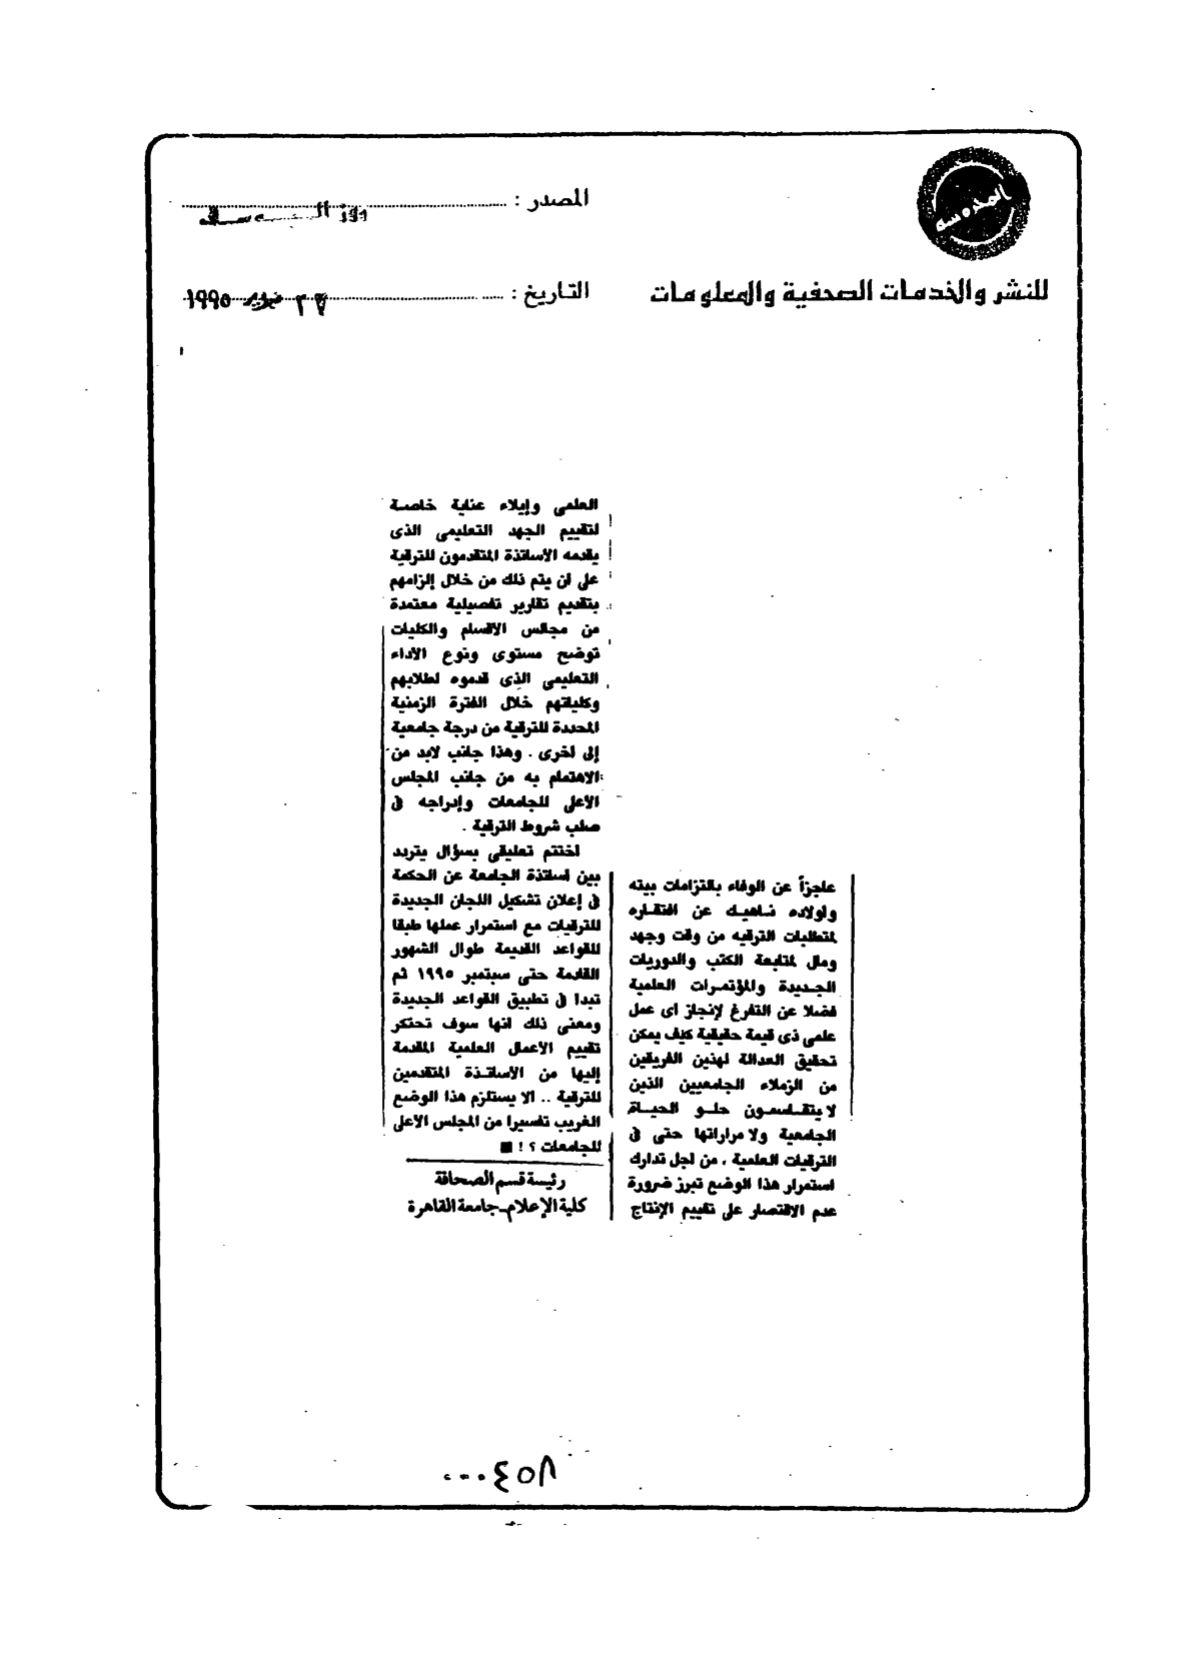 المدوسة
للنشر والخدمات الصحفية والمعلومات
المصدر : روز اليوسف
التاريخ : ٢٧ فبراير ١٩٩٥
عاجزاً عن الوفاء بالتزامات بيته
واولاده ناهيك عن افتقاره
لمتطلبات الترقيه من وقت وجهد
ومال لمتابعة الكتب والدوريات
الجديدة والمؤتمرات العلمية
فضلا عن التفرغ لإنجاز اى عمل
علمى ذى قيمة حقيقية كيف يمكن
تحقيق العدالة لهذين الفريقين
من الزملاء الجامعيين الذين
لا يتقاسمون حلو الحياة
الجامعية ولا مراراتها حتى فى
الترقيات العلمية ، من اجل تدارك
استمرار هذا الوضع تبرز ضرورة
عدم الاقتصار على تقييم الإنتاج
العلمى وإيلاء عناية خاصة
لتقييم الجهد التعليمى الذى
يقدمه الأساتذة المتقدمون للترقية
على ان يتم ذلك من خلال إلزامهم
بتقديم تقارير تفصيلية معتمدة
من مجالس الاقسام والكليات
توضح مستوى ونوع الأداء
التعليمى الذى قدموه لطلابهم
وكلياتهم خلال الفترة الزمنية
المحددة للترقية من درجة جامعية
إلى اخرى . وهذا جانب لابد من
الاهتمام به من جانب المجلس
الأعلى للجامعات وإدراجه فى
صلب شروط الترقية .
اختتم تعليقى بسؤال يتردد
بين اساتذة الجامعة عن الحكمة
فى إعلان تشكيل اللجان الجديدة
للترقيات مع استمرار عملها طبقا
للقواعد القديمة طوال الشهور
القادمة حتى سبتمبر ١٩٩٥ ثم
تبدا فى تطبيق القواعد الجديدة
ومعنى ذلك انها سوف تحتكر
تقييم الأعمال العلمية المقدمة
إليها من الأساتذة المتقدمين
للترقية .. الا يستلزم هذا الوضع
الغريب تفسيرا من المجلس الأعلى
للجامعات ؟ ! ■
رئيسة قسم الصحافة
كلية الإعلام ـ جامعة القاهرة